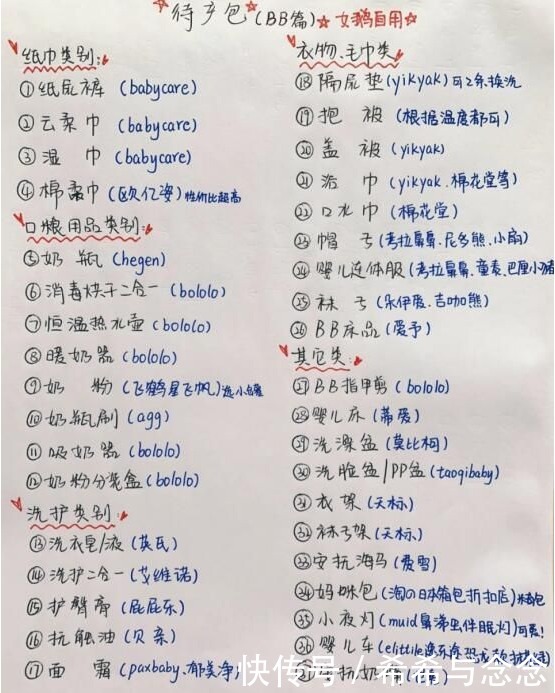 待产包(BB篇) 女鹅自用
纸巾类别:
①纸尿裤 (babycare)
②云柔巾 (babycare)
③湿 巾 (babycare)
④棉柔巾 (欧亿姿) 性价比超高
口粮用品类别:
⑤奶 瓶 (hegen)
⑥消毒烘干二合一 (bololo)
⑦恒温热水壶 (bololo)
⑧暖奶器 (bololo)
⑨奶 粉 (飞鹤星飞帆)
⑩奶瓶刷 (agg)
⑪吸奶器 (bololo)
⑫奶粉分装盒 (bololo)
洗护类别:
⑬洗衣皂/液 (英氏)
⑭洗护二合一 (艾维诺)
⑮护臀膏 (屁屁乐)
⑯抚触油 (贝亲)
⑰面 霜 (paxbaby、郁美净)
衣物、毛巾类
⑱隔尿垫 (yikyak) 可2条换洗
⑲抱 被 (根据温度都可)
⑳盖 被 (yikyak)
㉑浴 巾 (yikyak、棉花堂等)
㉒口水巾 (棉花堂)
㉓帽 子 (考拉鼻鼻、尼多熊、小扇)
㉔婴儿连体服 (考拉鼻鼻、童素、巴厘小猪
㉕袜 子 (乐伊爱、吉咖熊)
㉖BB床品 (爱予)
其它类:
㉗BB指甲剪 (bololo)
㉘婴儿床 (蒂爱)
㉙洗澡盆 (莫比柯)
㉚洗脸盆/PP盆 (taoqibaby)
㉛衣架 (天标)
㉜袜子架 (天标)
㉝安抚海马 (费雪)
㉞妈咪包 (淘の日本箱包折扣店)
㉟小夜灯 (muid鼻涕虫伴眠灯) 可爱!
㊱婴儿车 (elittile
快传号 / 希希与念念